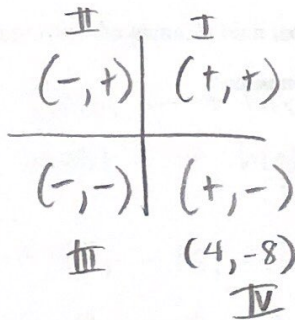 II I
(-,+) (+,+)
(-,-) (+,-)
III (4,-8)
IV